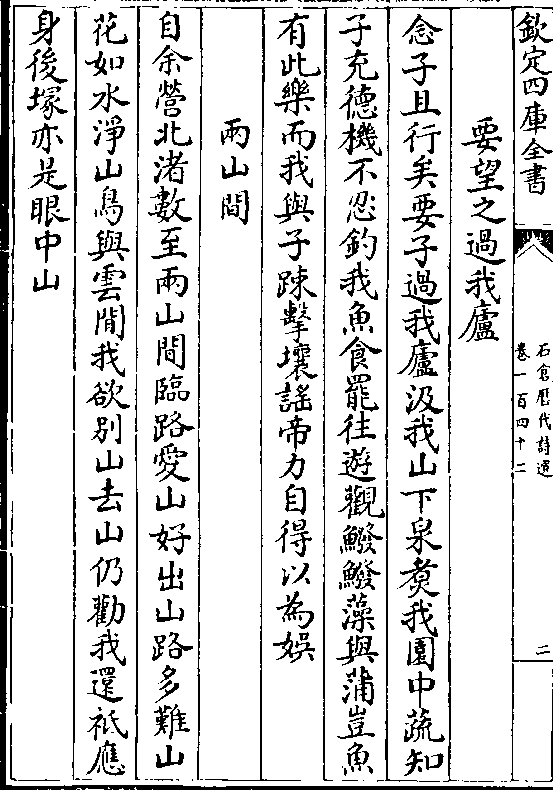 欽定四庫全書
石倉歷代詩選
卷一百四十二
二
要望之過我廬
念子且行矣要子過我廬汲我山下泉煑我園中蔬知
子充德機不忍釣我魚食罷往遊觀鱍鱍藻與蒲豈魚
有此樂而我與子踈擊壤謡帝力自得以為娯
兩山間
自余營北渚數至兩山間臨路愛山好出山路多難山
花如水淨山鳥與雲閒我欲别山去山仍勸我還祗應
身後塚亦是眼中山